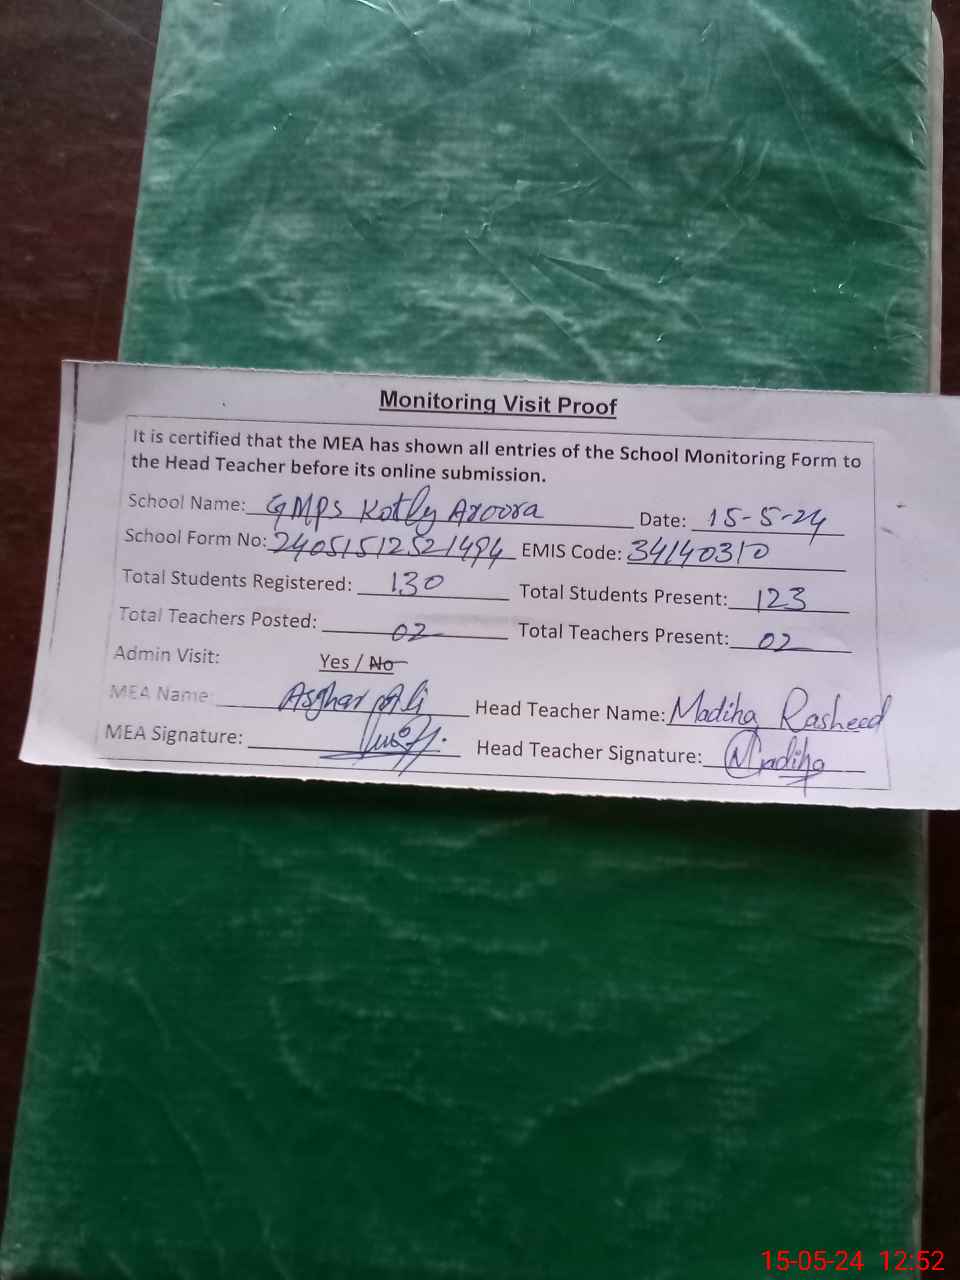 Monitoring Visit Proof
It is certified that the MEA has shown all entries of the School Monitoring Form to
the Head Teacher before its online submission.
School Name: GMPS Kotly Aroora Date: 15-5-24
School Form No: 24051512521494 EMIS Code: 34140310
Total Students Registered: 130 Total Students Present: 123
Total Teachers Posted: 02 Total Teachers Present: 02
Admin Visit: Yes / No
MEA Name: Asghar Ali Head Teacher Name: Madiha Rasheed
MEA Signature: Head Teacher Signature: Madiha
15-05-24 12:52